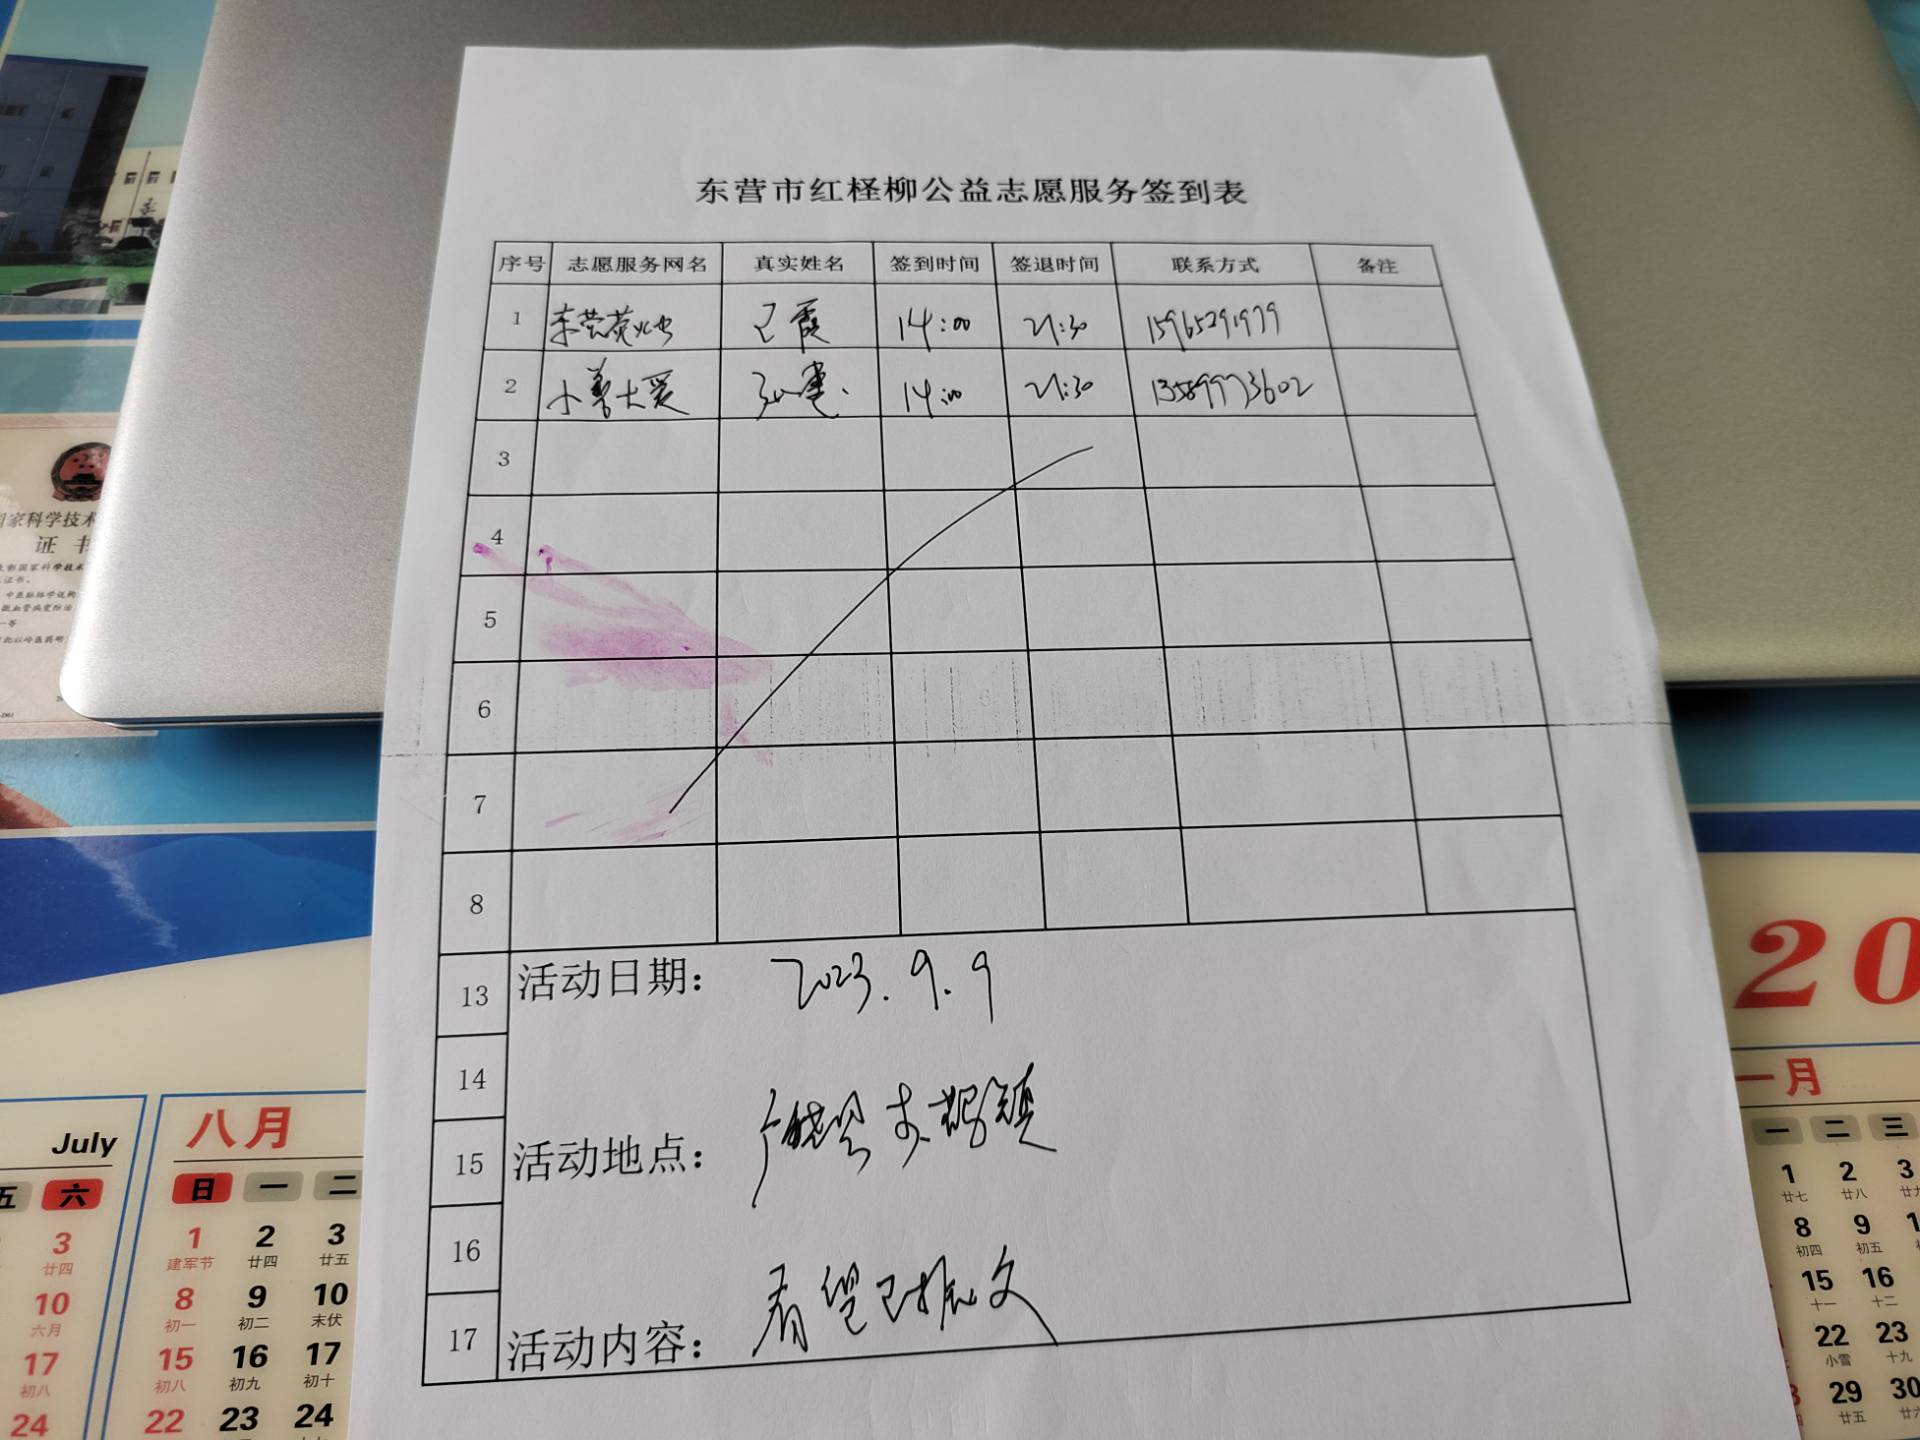 东营市红柽柳公益志愿服务签到表
序号 志愿服务网名 真实姓名 签到时间 签退时间 联系方式 备注
1 东营萤火虫 已霞 14:00 21:30 15965291979
2 小善大爱 14:00 21:30 13589973602
3
4
5
6
7
8
13 活动日期： 2023.9.9
14
15 活动地点：
16
17 活动内容： 看望已振文
国家科学技术
证书
July
五 六
3
廿四
10
六月
17
初八
24
八月
日 一 二
1 2 3
建军节 廿四 廿五
8 9 10
初一 初二 末伏
15 16 17
初八 初九 初十
22 23 24
20
一月
一 二 三
1 2 3
廿七 廿八 廿九
8 9
初四 初五
15 16
十一 十二
22 23
小雪 十九
29 30
廿五 廿六